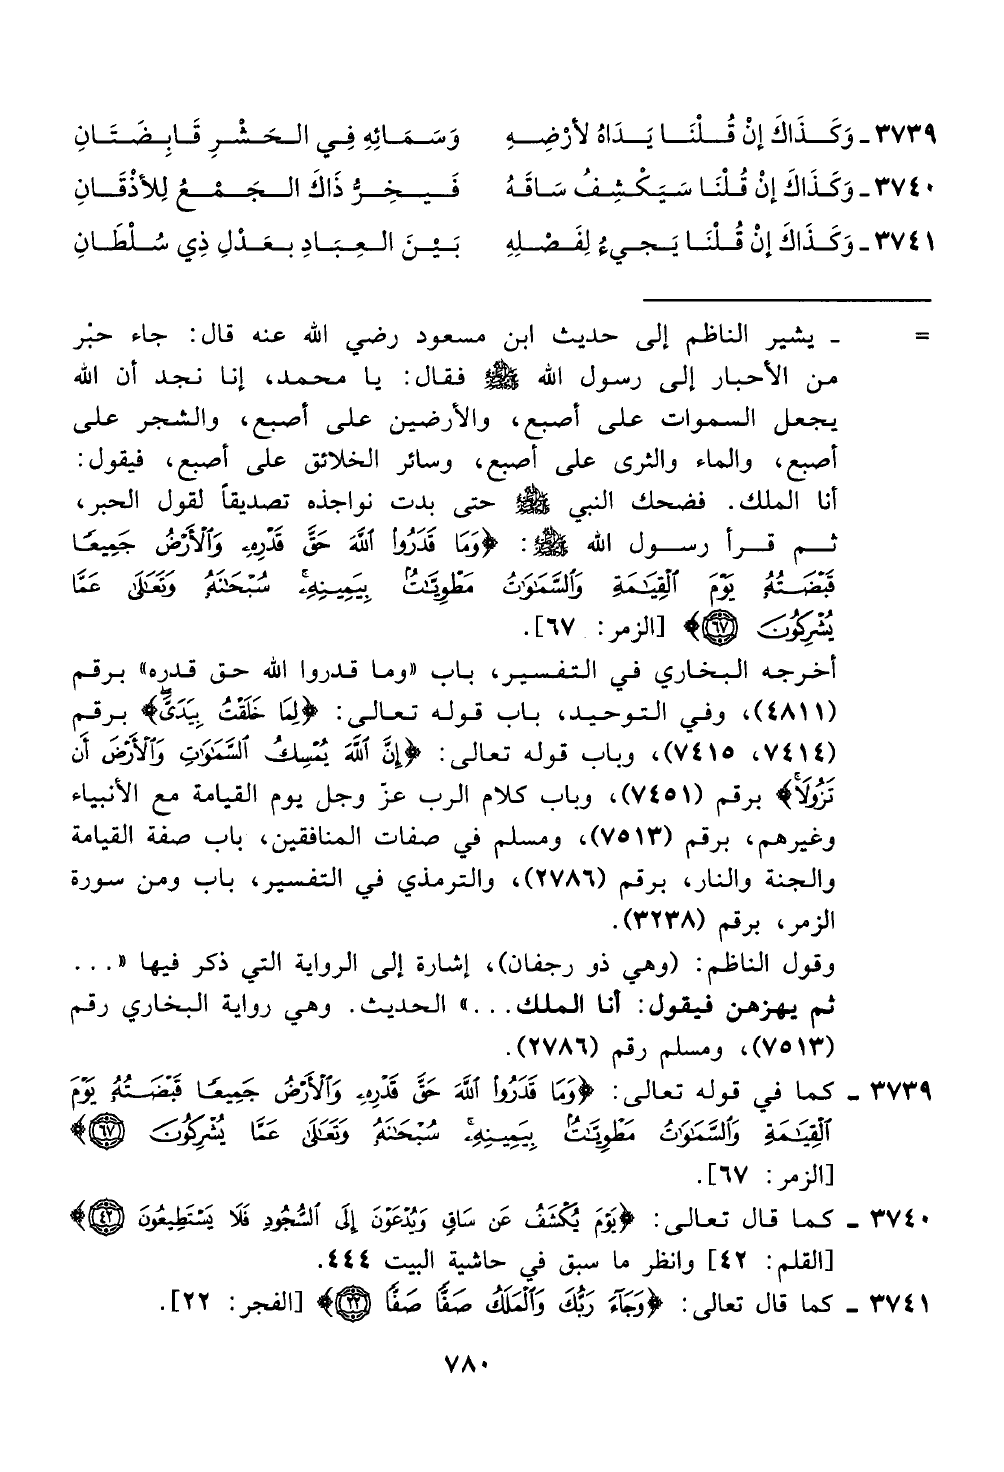 ٣٧٣٩ ـ وَكَـذَاكَ إنْ قُـلْنَـا يَـدَاهُ لأرْضِـهِ وَسَـمَـائِهِ فِـي الـحَـشْـرِ قَـابِـضَـتَـانِ
٣٧٤٠ ـ وَكَـذَاكَ إنْ قُـلْنَا سَـيَـكْـشِـفُ سَـاقَـهُ فَـيَـخِـرُّ ذَاكَ الـجَـمْـعُ لِلأذْقَـانِ
٣٧٤١ ـ وَكَـذَاكَ إنْ قُـلْنَـا يَـجـيءُ لِفَـصْـلِهِ بَـيْـنَ العِـبَـادِ بـعَـدْلِ ذِي سُـلْطَـانِ
= ـ يشير الناظم إلى حديث ابن مسعود رضي الله عنه قال: جاء حبْر
من الأحبار إلى رسول الله ﷺ فقال: يا محمد، إنا نجد أن الله
يجعل السموات على أصبع، والأرضين على أصبع، والشجر على
أصبع، والماء والثرى على أصبع، وسائر الخلائق على أصبع، فيقول:
أنا الملك. فضحك النبي ﷺ حتى بدت نواجذه تصديقاً لقول الحبر،
ثـم قـرأ رسـول الله ﷺ: ﴿وَمَا قَدَرُوا۟ ٱللَّهَ حَقَّ قَدْرِهِۦ وَٱلْأَرْضُ جَمِيعًا
قَبْضَتُهُۥ يَوْمَ ٱلْقِيَـٰمَةِ وَٱلسَّمَـٰوَٰتُ مَطْوِيَّـٰتٌۢ بِيَمِينِهِۦ ۚ سُبْحَـٰنَهُۥ وَتَعَـٰلَىٰ عَمَّا
يُشْرِكُونَ ٦٧﴾ [الزمر: ٦٧].
أخرجه البخاري في التفسير، باب «وما قدروا الله حق قدره» برقم
(٤٨١١)، وفي التوحيد، باب قوله تعالى: ﴿لِمَا خَلَقْتُ بِيَدَىَّ ۖ﴾ برقم
(٧٤١٤، ٧٤١٥)، وباب قوله تعالى: ﴿إِنَّ ٱللَّهَ يُمْسِكُ ٱلسَّمَـٰوَٰتِ وَٱلْأَرْضَ أَن
تَزُولَا ۚ﴾ برقم (٧٤٥١)، وباب كلام الرب عزّ وجل يوم القيامة مع الأنبياء
وغيرهم، برقم (٧٥١٣)، ومسلم في صفات المنافقين، باب صفة القيامة
والجنة والنار، برقم (٢٧٨٦)، والترمذي في التفسير، باب ومن سورة
الزمر، برقم (٣٢٣٨).
وقول الناظم: (وهي ذو رجفان)، إشارة إلى الرواية التي ذكر فيها «...
ثم يهزهن فيقول: أنا الملك...» الحديث. وهي رواية البخاري رقم
(٧٥١٣)، ومسلم رقم (٢٧٨٦).
٣٧٣٩ ـ كما في قوله تعالى: ﴿وَمَا قَدَرُوا۟ ٱللَّهَ حَقَّ قَدْرِهِۦ وَٱلْأَرْضُ جَمِيعًا قَبْضَتُهُۥ يَوْمَ
ٱلْقِيَـٰمَةِ وَٱلسَّمَـٰوَٰتُ مَطْوِيَّـٰتٌۢ بِيَمِينِهِۦ ۚ سُبْحَـٰنَهُۥ وَتَعَـٰلَىٰ عَمَّا يُشْرِكُونَ ٦٧﴾
[الزمر: ٦٧].
٣٧٤٠ ـ كما قال تعالى: ﴿يَوْمَ يُكْشَفُ عَن سَاقٍ وَيُدْعَوْنَ إِلَى ٱلسُّجُودِ فَلَا يَسْتَطِيعُونَ ٤٢﴾
[القلم: ٤٢] وانظر ما سبق في حاشية البيت ٤٤٤.
٣٧٤١ ـ كما قال تعالى: ﴿وَجَآءَ رَبُّكَ وَٱلْمَلَكُ صَفًّا صَفًّا ٢٢﴾ [الفجر: ٢٢].
٧٨٠